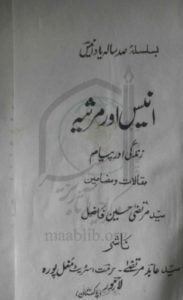 بسلسلۂ صد سالہ یاد انیس
انیس اور مرثیہ
زندگی اور پیام
مقالات و مضامین
سید مرتضیٰ حسین فاضل
ناشر
سید عابد مرتضےٰ - سٹریٹ مغل پورہ
لاہور
(پاکستان)
maablib.org